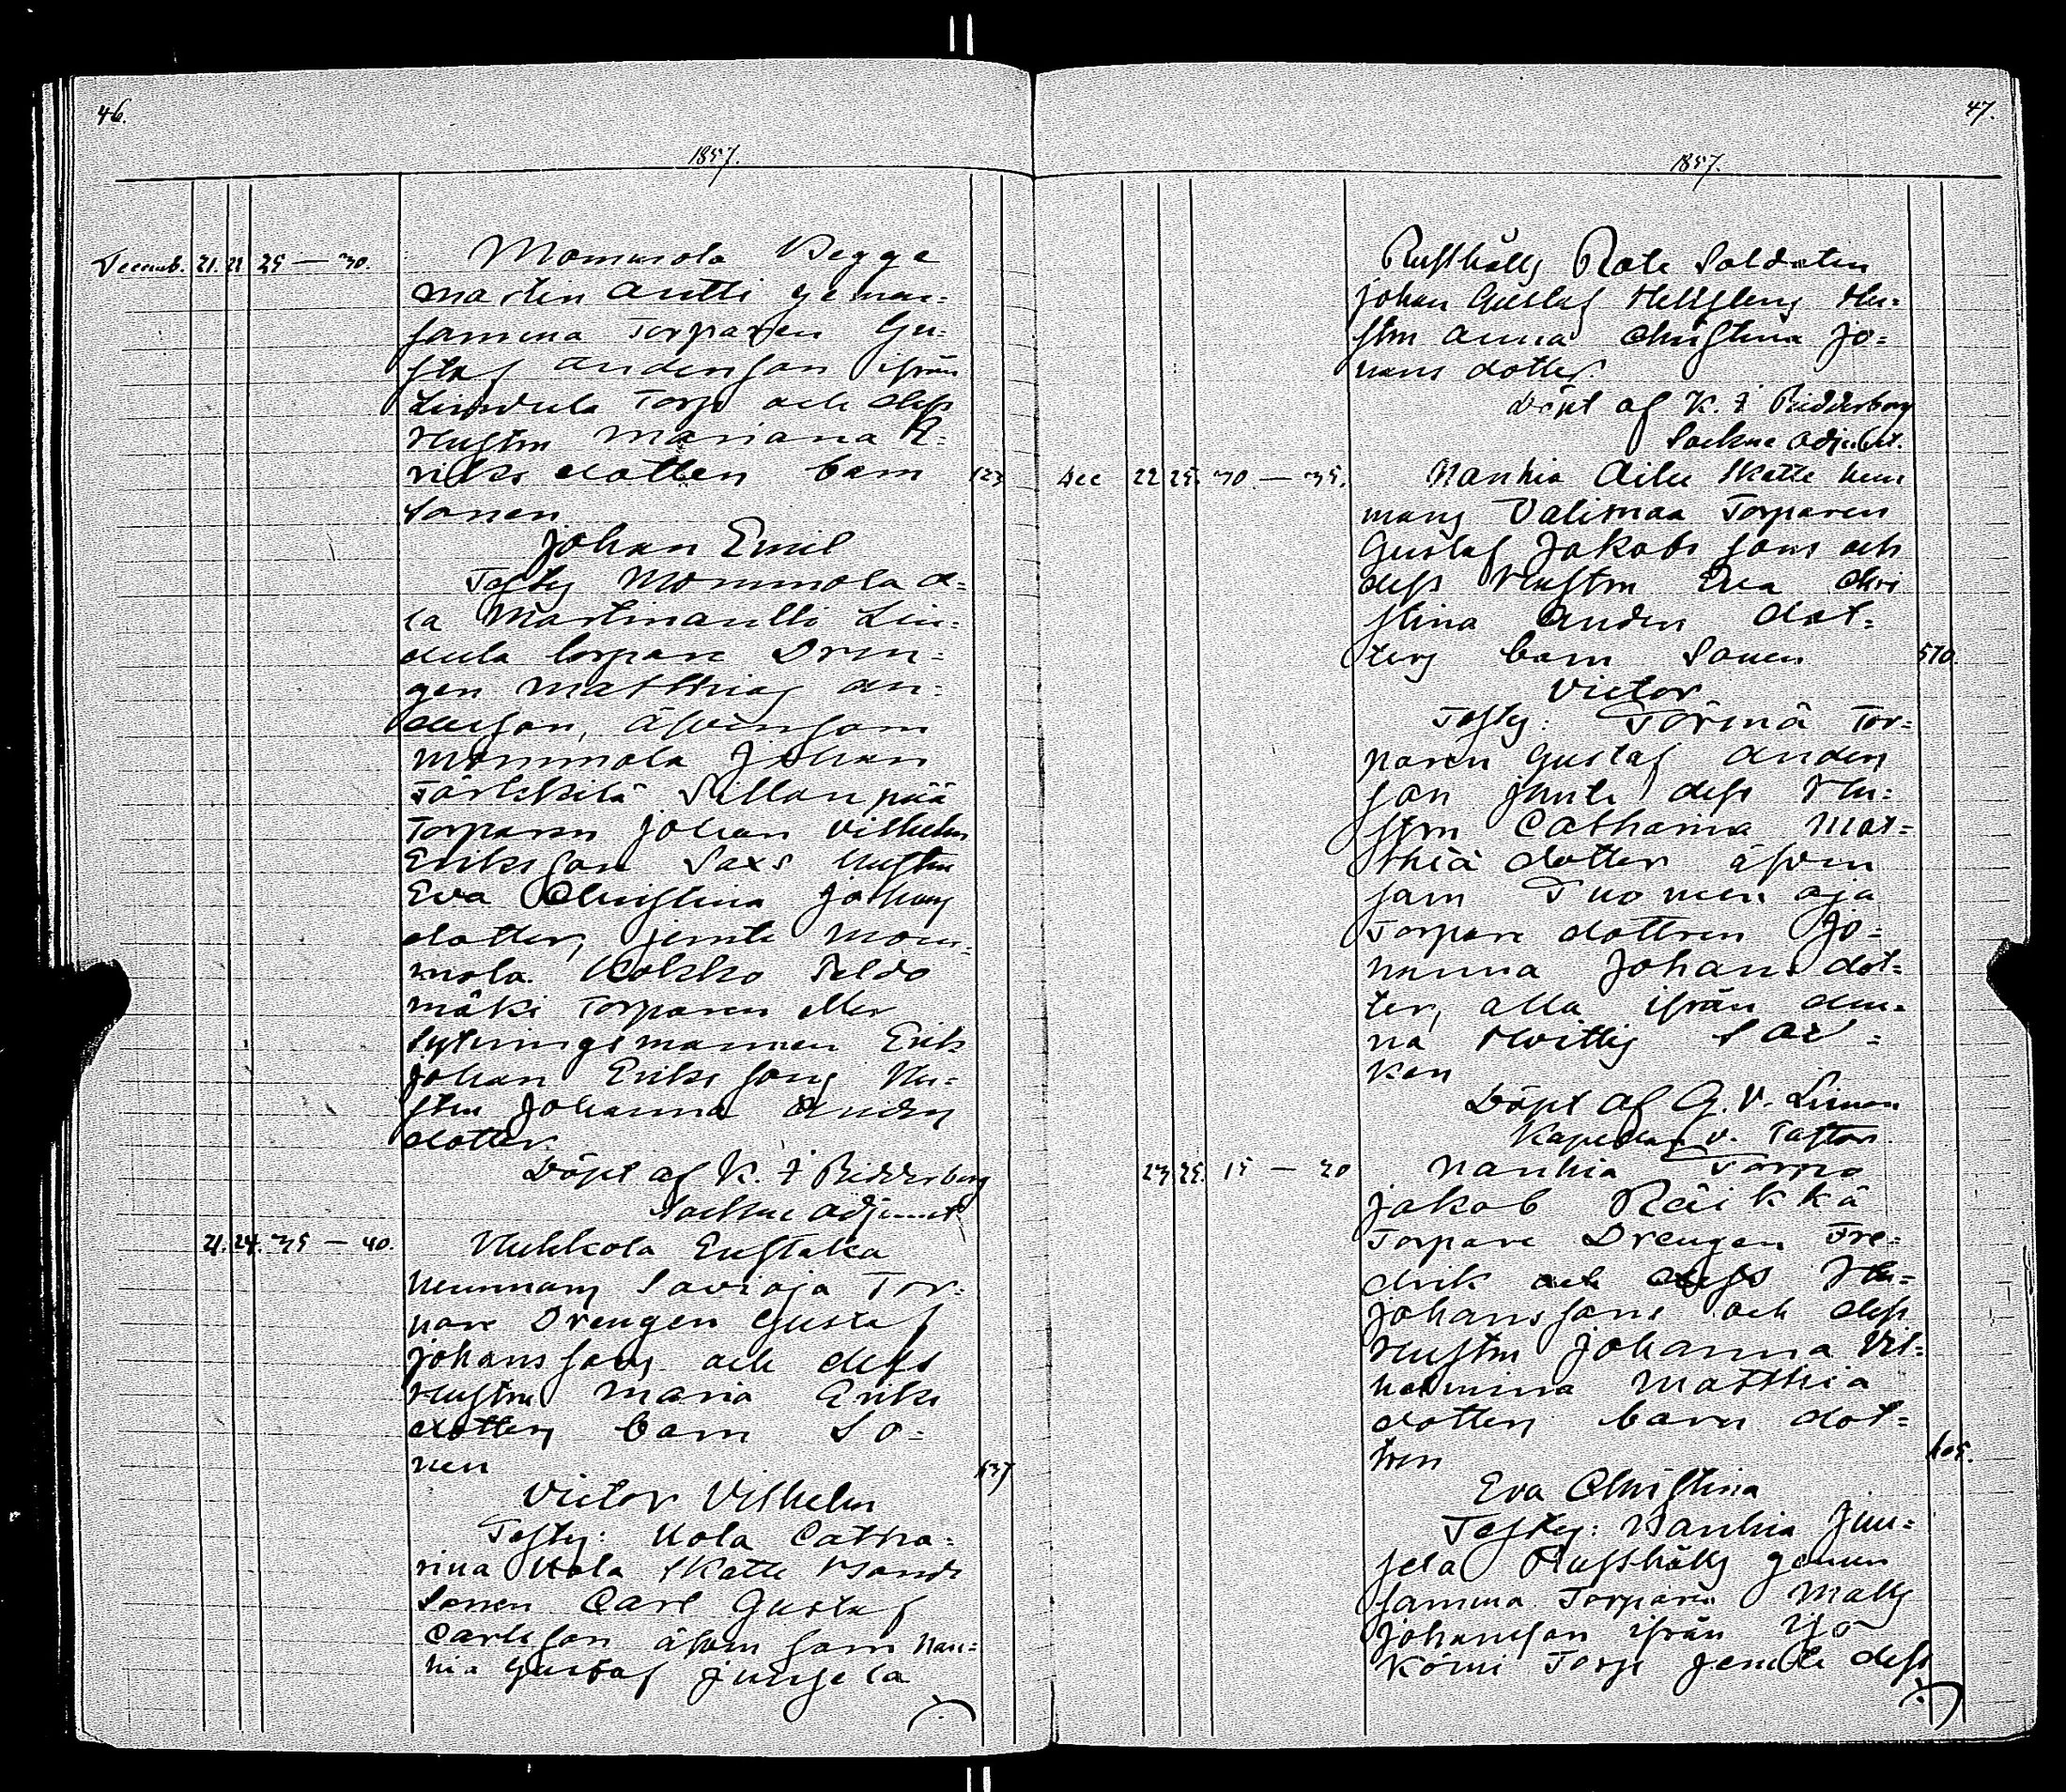 46.
1857.
Decemb. 21. 21 25 — 30. Mommola Begge
Martin Antti gemen-
samma Torparen Gu-
staf Andersson ifrån
Lindula Torp och dess
Hustru Mariana E-
riks dotters barn 123
sonen
Johan Emil
Testes Mommola A-
la Martinantti Lin-
dula torpare Dren-
gen Matthias An-
dersson, äfvensom
Mommola Johan
Sillanpää
Torparen Johan Vilhelm
Eriksson Saxs Hustru
Eva Christina Johans
dotter, jemte Mom-
mola Kokko Peldo
mäki Torparen eller
Sytningsmannen Erik
Johan Erikssons Hu-
stru Johanna Anders
dotter.
Döpt af K. F Ridderborg
Sockne adjunct
21. 24. 35 — 40. Hukkola Eustaka
hemmans Savioja Tor-
pare Drengen Gustaf
Johanssons och dess
Hustru Maria Eriks
dotters barn So-
nen 637
Victor Vilhelm
Testes: Uola Catha-
rina Uola Skatte Bonde
Sonen Carl Gustaf
Carlsson äfvensom Nan-
hia Gustaf Junjela
47.
1857.
Rusthålls Rote Soldaten
Johan Gustaf Hellstens Hu-
stru Anna Christina Jo-
hans dotter.
Döpt af K. F Ridderborg
Sockne adjunct.
Dec 22 25. 30. — 35. Nanhia Ailu Skatte hem
mans Valimaa Torparen
Gustaf Jakobs sons och
dess Hustru Eva Chri
stina Anders dot-
ters barn Sonen 570.
Victor
Testes: Törmä Tor-
paren Gustaf Anders
son jemte dess Hu-
stru Catharina Mat-
thiä dotter äfven
som Tuomen oja
Torpare dottren Jo-
hanna Johans dot-
ter, alla ifrån den-
na Hvittis Soc-
ken
Döpt af G. V. Liman
Kapellan v. Pastor.
23. 25. 15 — 20 Nanhia Torpa
Jakob Räikkä
Torpare Drengen Fre-
drik och dess Hu-
Johanssons och dess
Hustru Johanna Vil-
helmina Matthiä
dotters barn dot-
tren 605.
Eva Christina
Testes: Nanhia Jun-
jela Rusthålls gemen
samma Torparen Matts
Johansson ifrån Yo
Körni Torp jemte dess